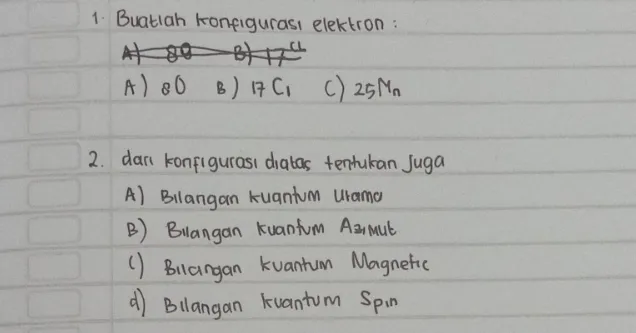 1. Buatlah konfigurasi elektron :
A) 8O B) 17 CL
A) 8O B) 17 Cl C) 25Mn
2. dari konfigurasi diatas tentukan Juga
A) Bilangan kuantum Utama
B) Bilangan kuantum Azimut
C) Bilangan kuantum Magnetic
d) Bilangan kuantum Spin